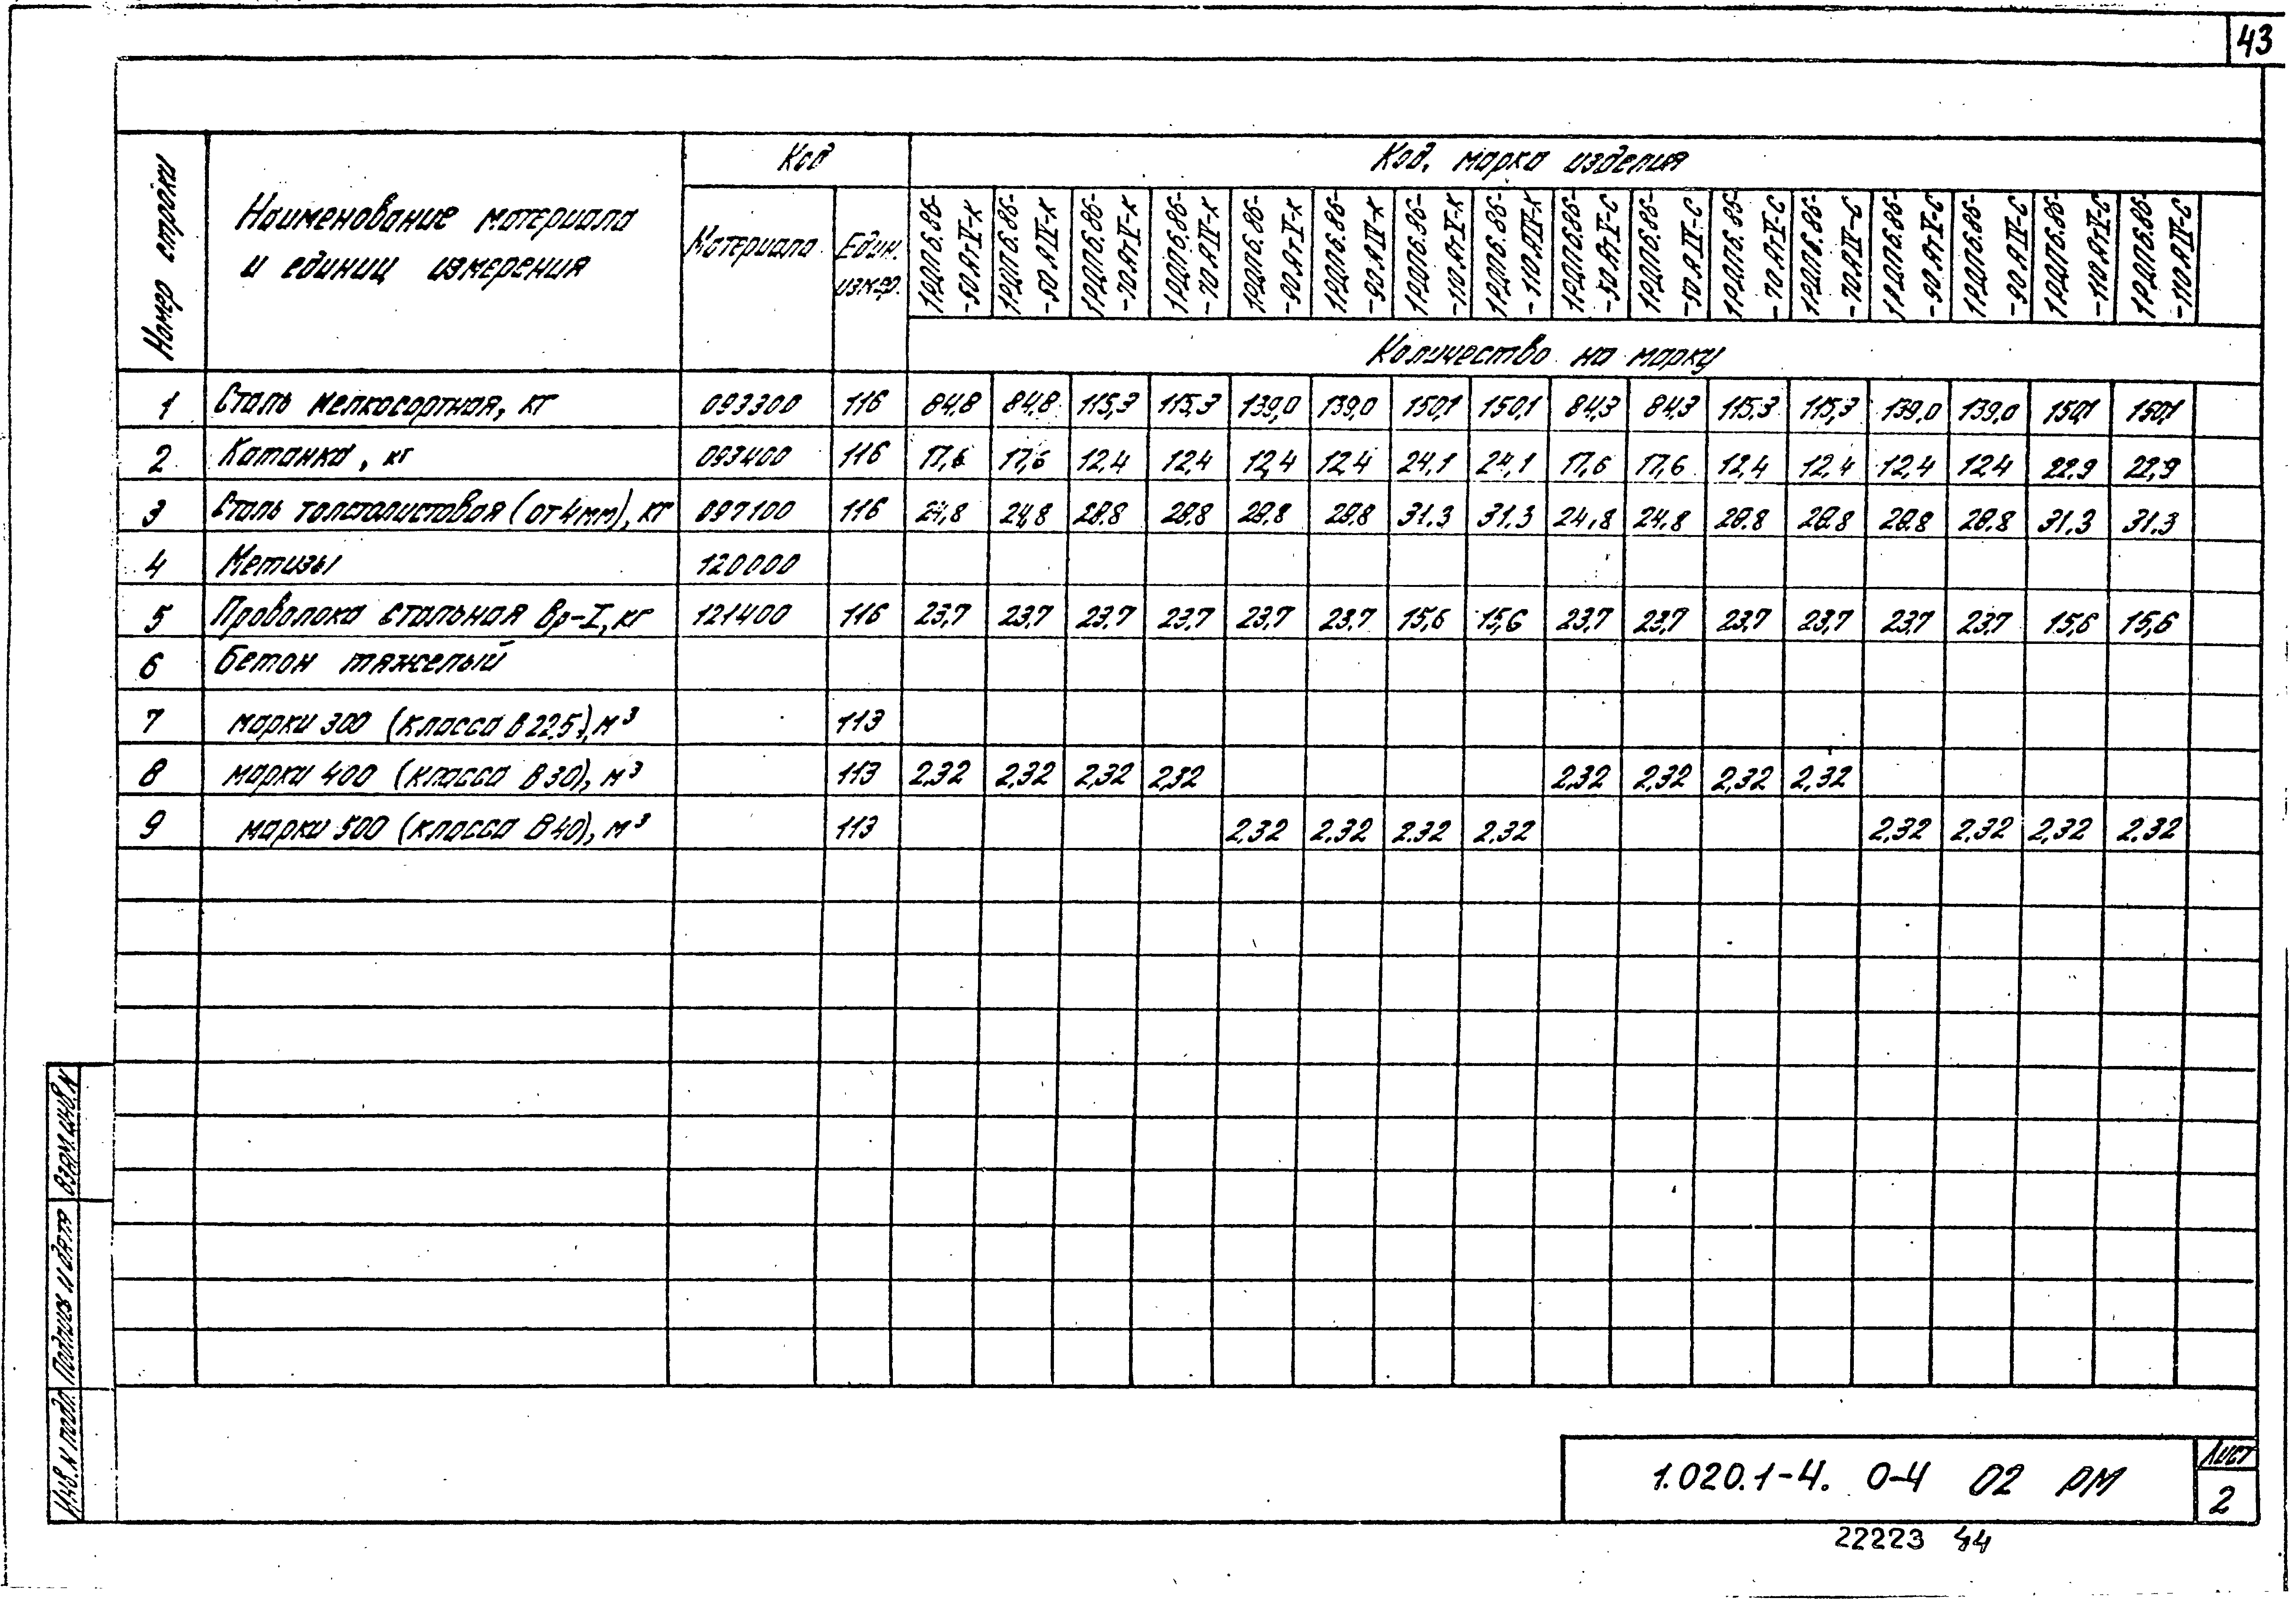 43
Номер строки
Наименование материала
и единиц измерения
Код
Материала
Един.
измер.
Код, марка изделия
1РДП6.86-
-50АтV-К
1РДП6.86-
-50АIV-К
1РДП6.86-
-70АтV-К
1РДП6.86-
-70АIV-К
1РДП6.86-
-90АтV-К
1РДП6.86-
-90АIV-К
1РДП6.86-
-110АтV-К
1РДП6.86-
-110АIV-К
1РДП6.86-
-50АтV-С
1РДП6.86-
-50АIV-С
1РДП6.86-
-70АтV-С
1РДП6.86-
-70АIV-С
1РДП6.86-
-90АтV-С
1РДП6.86-
-90АIV-С
1РДП6.86-
-110АтV-С
1РДП6.86-
-110АIV-С
Количество на марку
1 Сталь мелкосортная, кг 093300 116 84,8 84,8 115,3 115,3 139,0 139,0 150,1 150,1 84,3 84,3 115,3 115,3 139,0 139,0 150,1 150,1
2 Катанка, кг 093400 116 17,6 17,6 12,4 12,4 12,4 12,4 24,1 24,1 17,6 17,6 12,4 12,4 12,4 12,4 22,9 22,9
3 Сталь толстолистовая (от 4мм), кг 097100 116 24,8 24,8 28.8 28.8 28,8 28,8 31.3 31.3 24,8 24,8 28.8 28.8 28.8 28.8 31.3 31.3
4 Метизы 120000
5 Проволока стальная Вр-I, кг 121400 116 23,7 23,7 23,7 23,7 23,7 23,7 15,6 15,6 23,7 23,7 23,7 23,7 23,7 23,7 15,6 15,6
6 Бетон тяжелый
7 марки 300 (класса В22,5), м³ 113
8 марки 400 (класса В30), м³ 113 2,32 2,32 2,32 2,32 2,32 2,32 2,32 2,32
9 марки 500 (класса В40), м³ 113 2,32 2,32 2.32 2,32 2,32 2,32 2,32 2.32
Взам.инв.N
Подпись и дата
Инв.N подл.
1.020.1-4. 0-4 02 РМ
Лист
2
22223 44